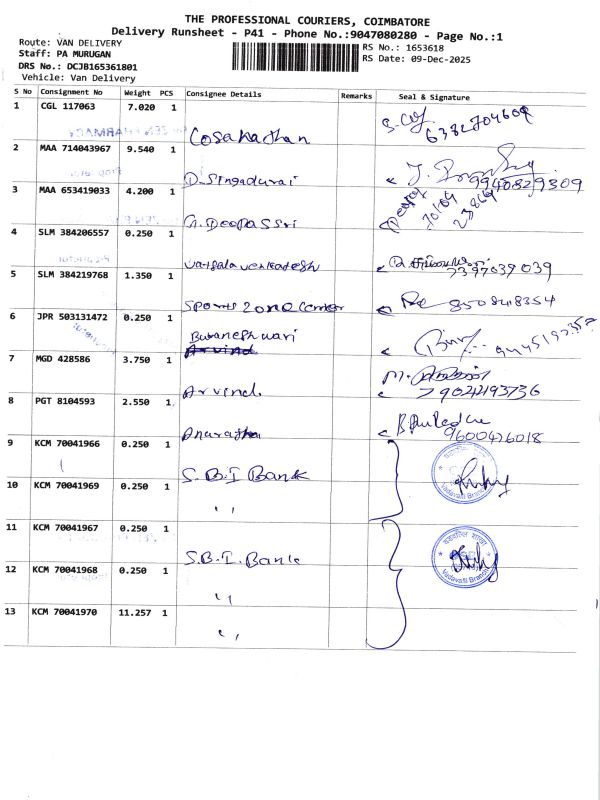 THE PROFESSIONAL COURIERS, COIMBATORE
Delivery Runsheet - P41 - Phone No.:9047080280 - Page No.:1
Route: VAN DELIVERY
Staff: PA MURUGAN
DRS No.: DCJB165361801
Vehicle: Van Delivery
RS No.: 1653618
RS Date: 09-Dec-2025
S No Consignment No Weight PCS Consignee Details Remarks Seal & Signature
1 CGL 117063 7.020 1 6382704609
2 MAA 714043967 9.540 1 D. Singadurai 9940829309
3 MAA 653419033 4.200 1 G. Deepa ssri
4 SLM 384206557 0.250 1 Vatsala venkatesh 7397039039
5 SLM 384219768 1.350 1 Sports Zone Center
6 JPR 503131472 0.250 1 Buvaneshwari
7 MGD 428586 3.750 1 Arvind.
8 PGT 8104593 2.550 1 9600426018
9 KCM 70041966 0.250 1 S.B.I Bank
10 KCM 70041969 0.250 1 ,,
Vadavalli Branch
11 KCM 70041967 0.250 1 S.B.I. Bank
12 KCM 70041968 0.250 1 ,,
Vadavalli Branch
13 KCM 70041970 11.257 1 ,,